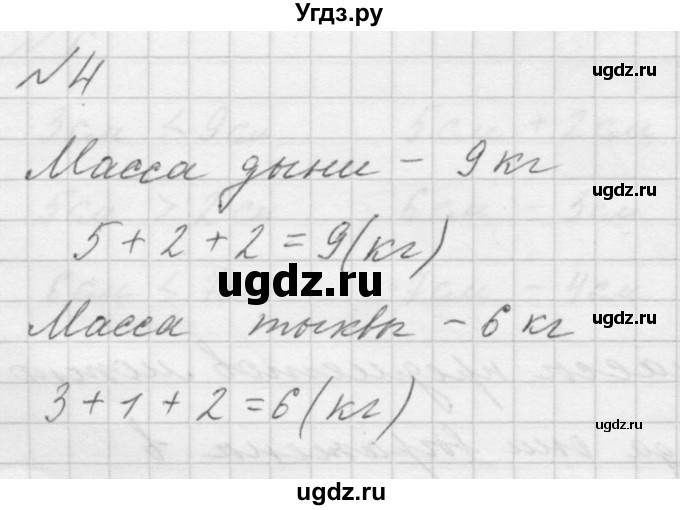 Угдз.ру
№4
ugdz.ru
Масса дыни - 9 кг
ugdz.ru
5 + 2 + 2 = 9 (кг)
ugdz.ru
ugdz.ru
Масса тыквы - 6 кг
3 + 1 + 2 = 6 (кг)
ugdz.ru
ugdz.ru